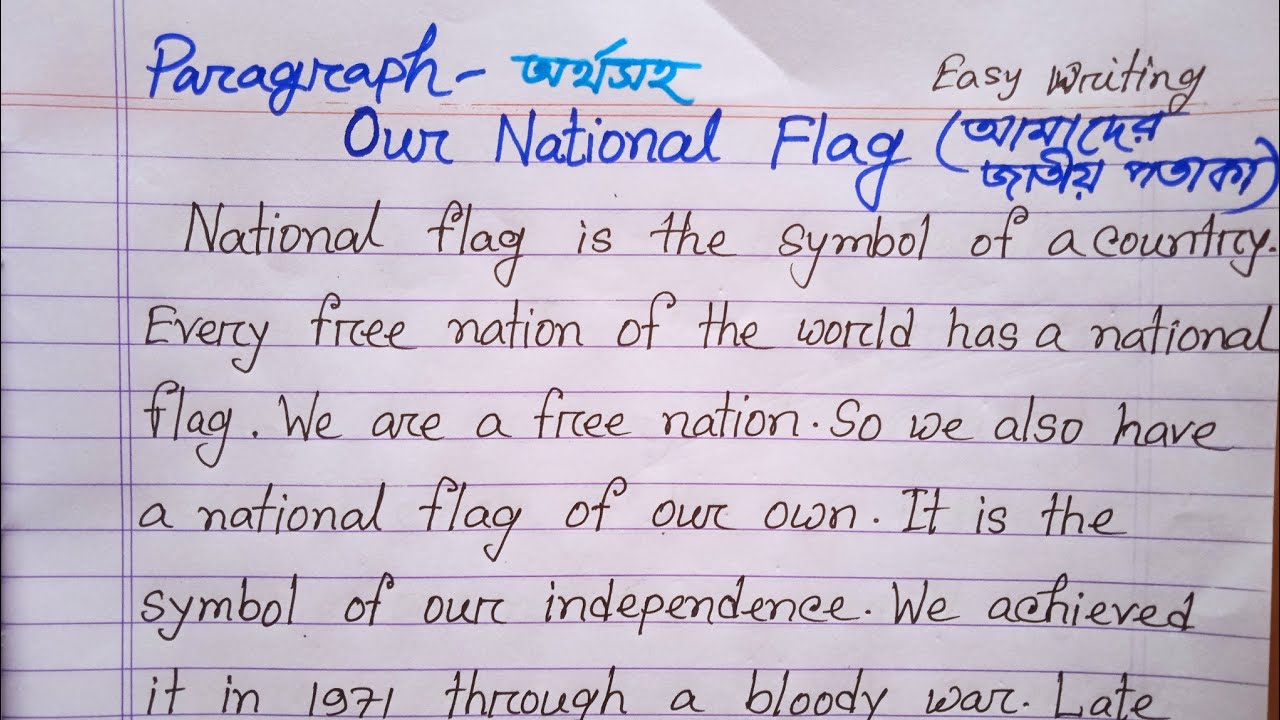 Paragraph - অর্থসহ
Easy Writing
Our National Flag (আমাদের
জাতীয় পতাকা)
National flag is the symbol of a country.
Every free nation of the world has a national
flag. We are a free nation. So we also have
a national flag of our own. It is the
symbol of our independence. We achieved
it in 1971 through a bloody war. Late